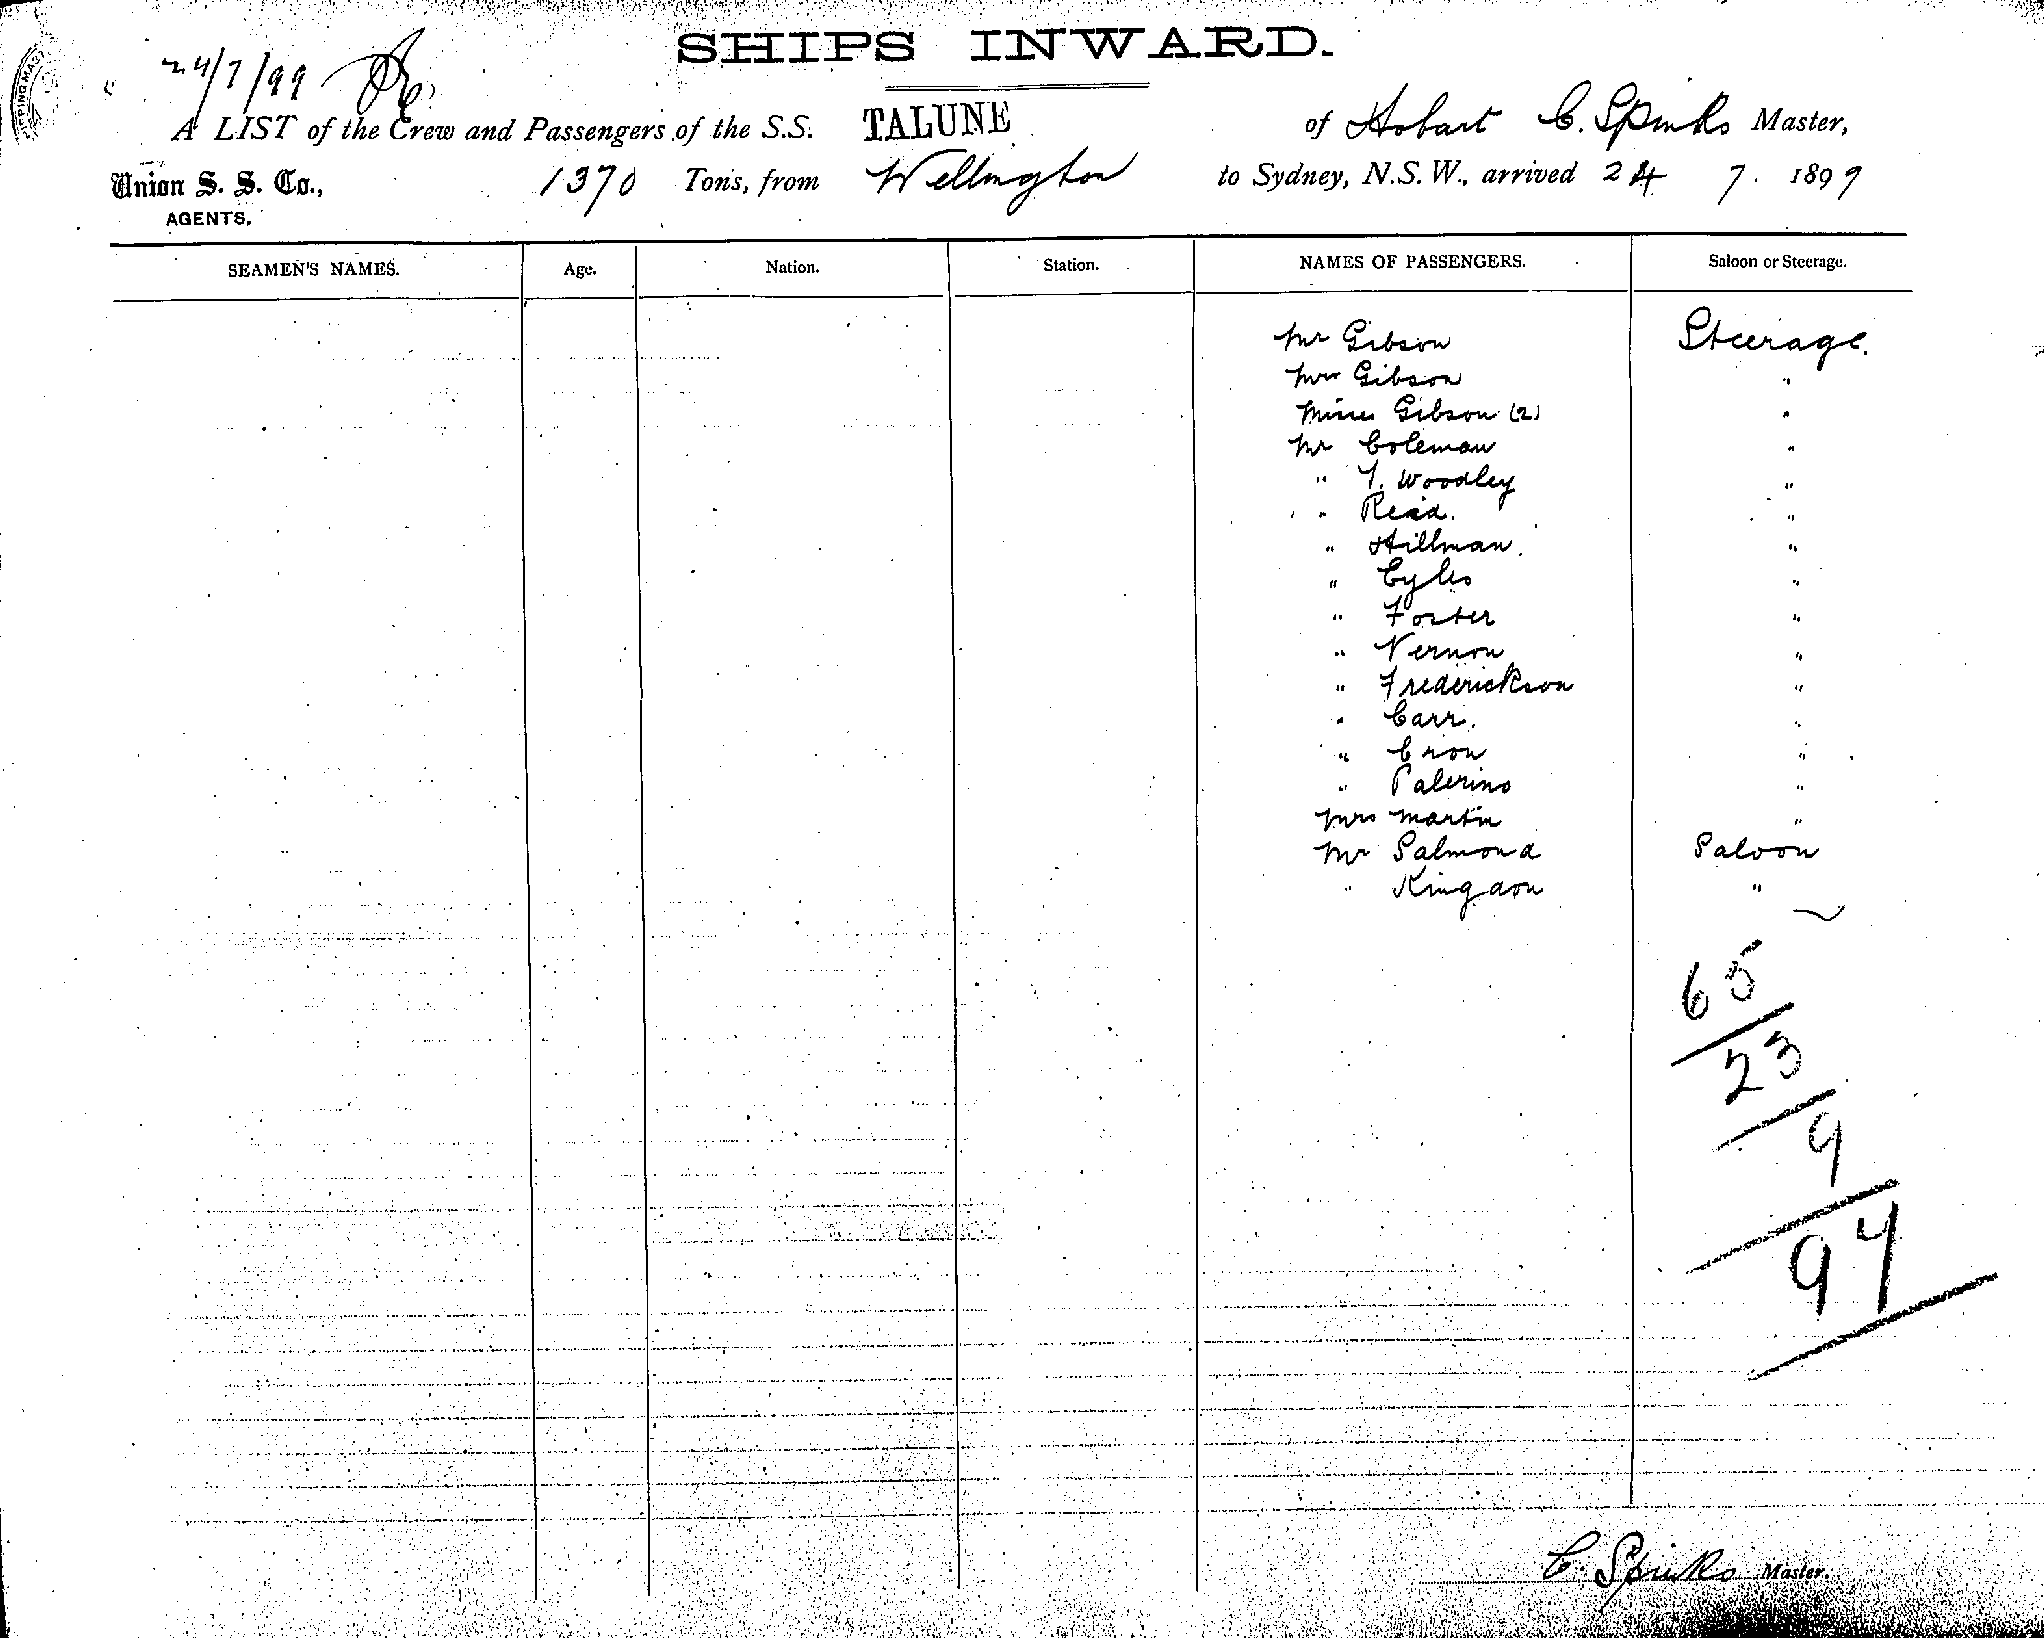 SHIPS INWARD.
24/7/99
A LIST of the Crew and Passengers of the S.S. TALUNE of Hobart C. Spinks Master,
Union S. S. Co., AGENTS, 1370 Tons, from Wellington to Sydney, N.S.W., arrived 24 7. 1899
SEAMEN'S NAMES. Age. Nation. Station. NAMES OF PASSENGERS. Saloon or Steerage.
Mr Gibson Steerage.
Mrs Gibson "
Misses Gibson (2) "
Mr Coleman "
" T. Woodley "
" Reid. "
" Hillman. "
" Eyles "
" Foster "
" Vernon "
" Frederickson "
" Carr. "
" Cron "
" Palerino "
Mrs Martin "
Mr Salmond Saloon
" Kingdon "
65
23
9
94
C. Spinks Master.